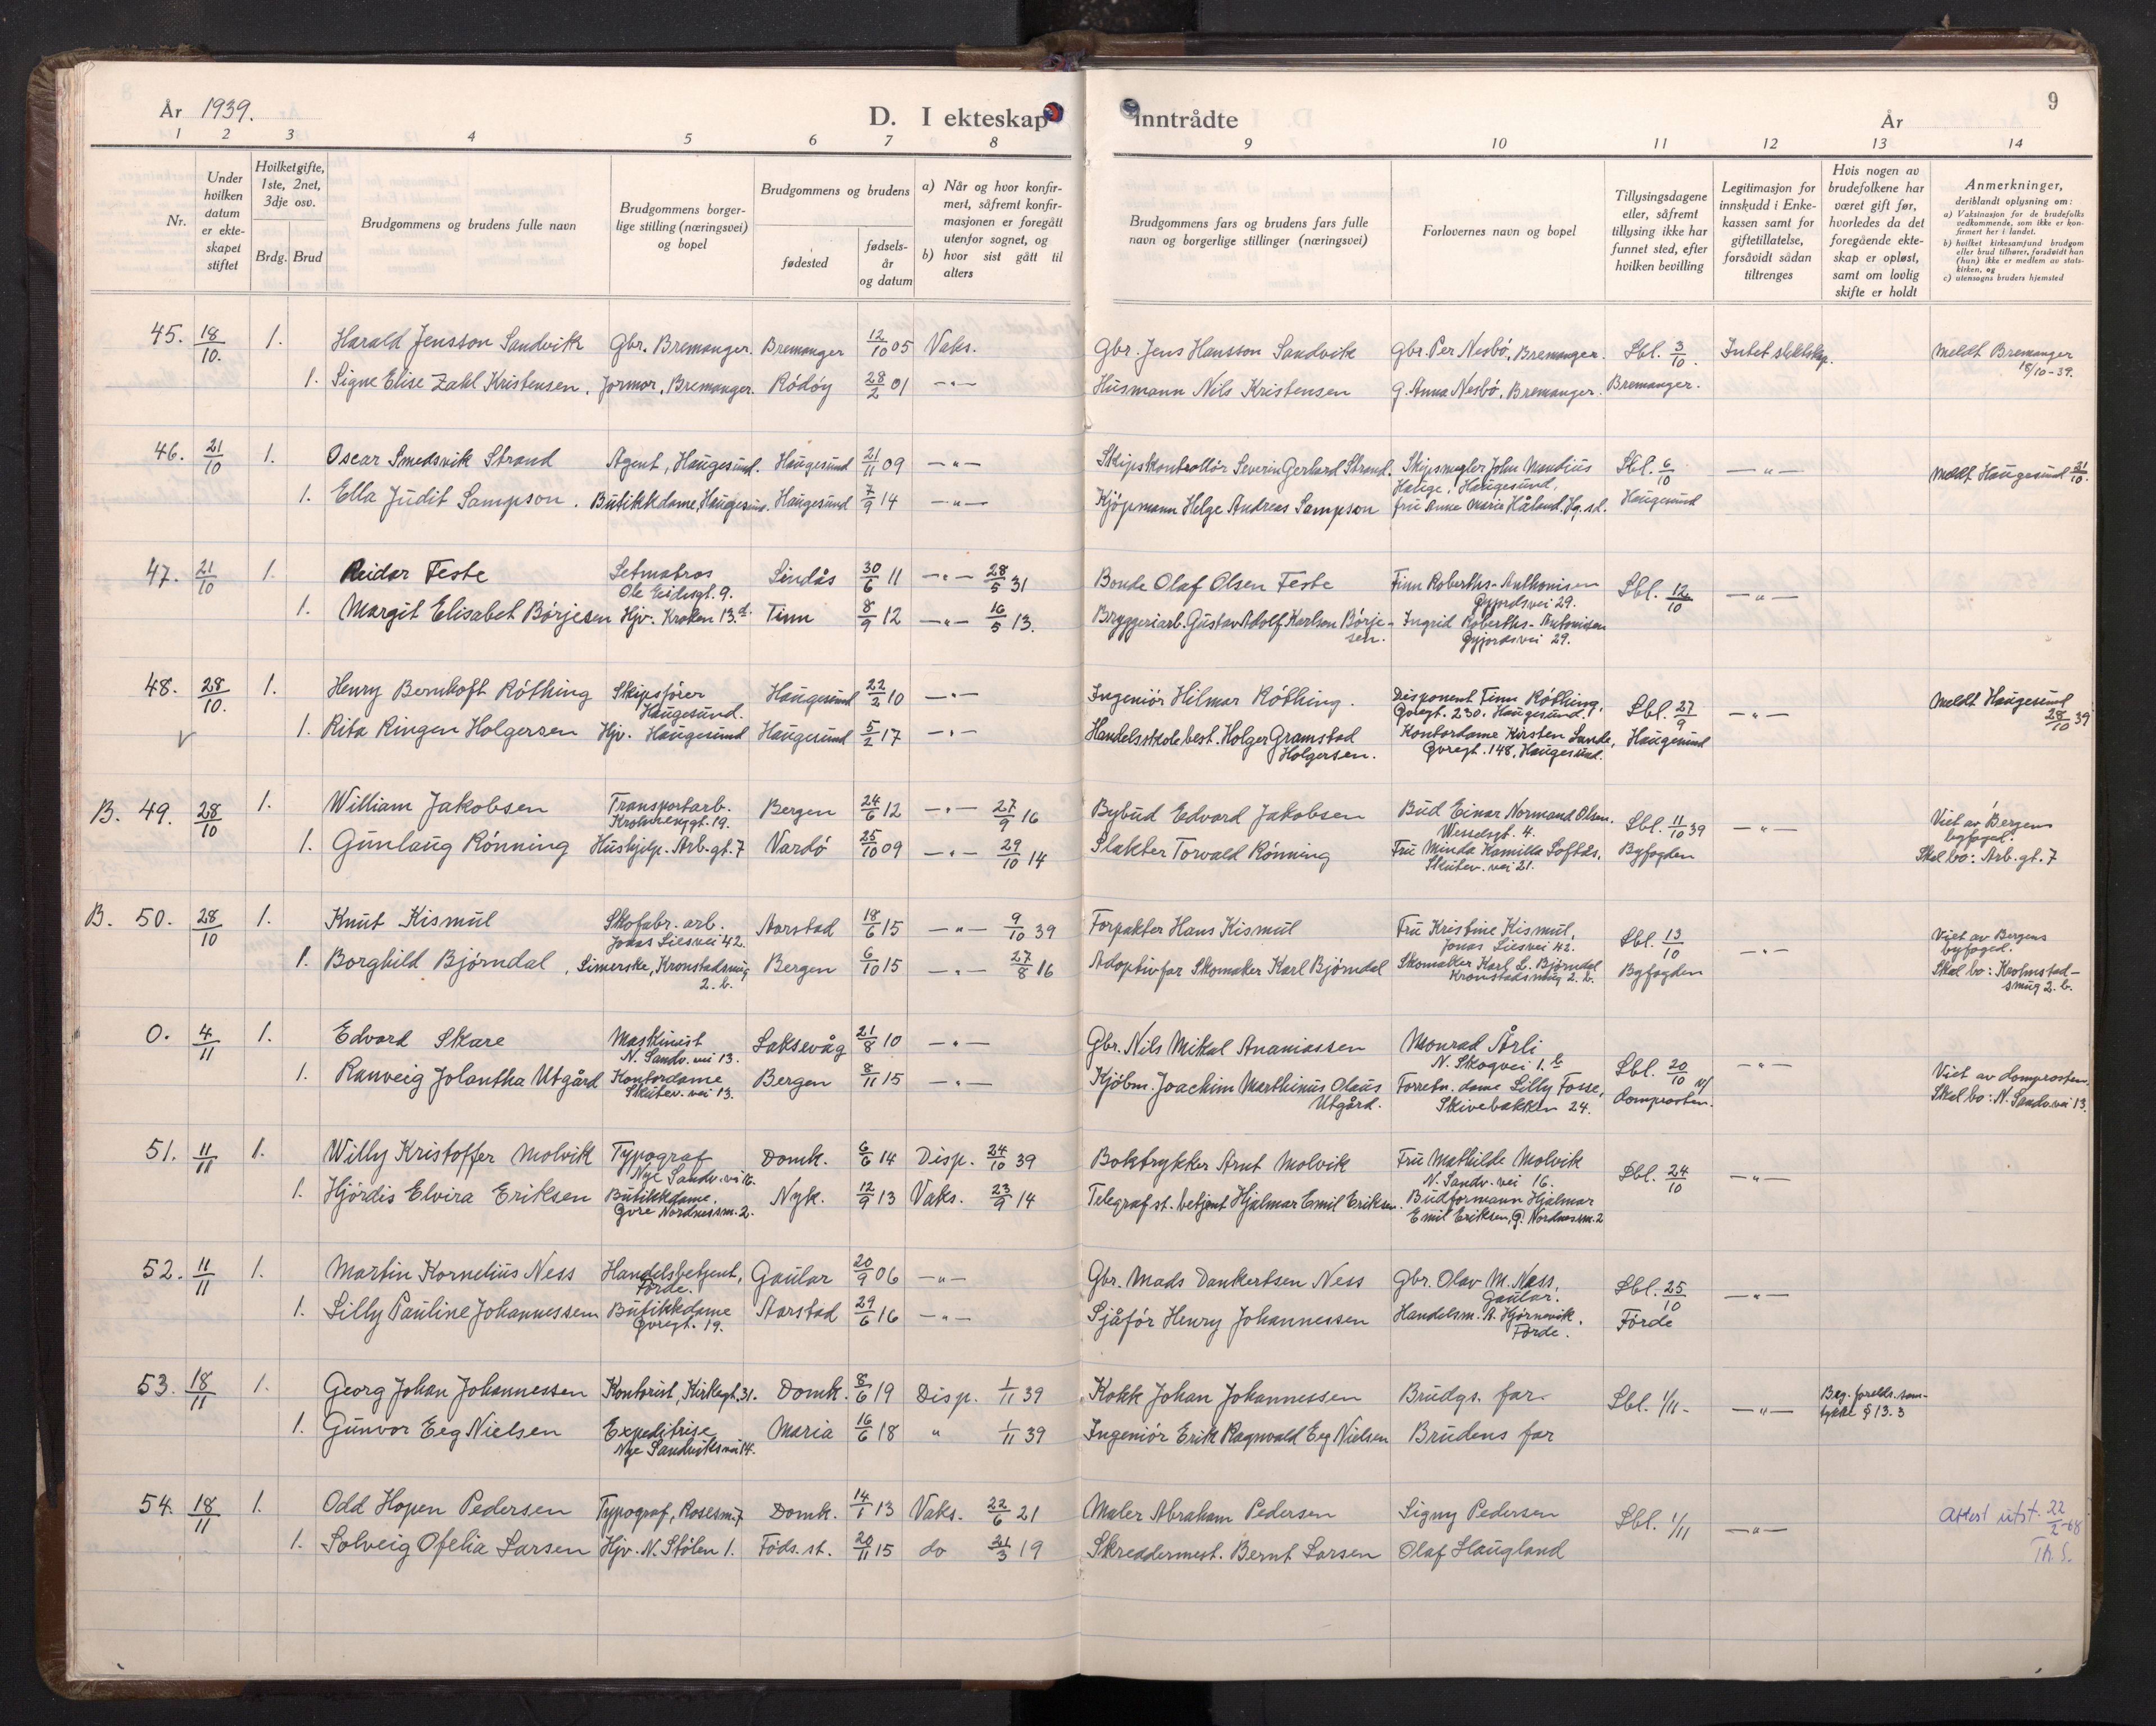 År 1939.
D. I ekteskap inntrådte
År
9
1 2 3 4 5 6 7 8 9 10 11 12 13 14
Nr.
Under hvilken datum er ekteskapet stiftet
Hvilket gifte, 1ste, 2net, 3dje osv.
Brdg. Brud
Brudgommens og brudens fulle navn
Brudgommens borgerlige stilling (næringsvei) og bopel
Brudgommens og brudens
fødested
fødselsår og datum
a) Når og hvor konfirmert, såfremt konfirmasjonen er foregått utenfor sognet, og
b) hvor sist gått til alters
Brudgommens fars og brudens fars fulle navn og borgerlige stillinger (næringsvei)
Forlovernes navn og bopel
Tillysingsdagene eller, såfremt tillysing ikke har funnet sted, efter hvilken bevilling
Legitimasjon for innskudd i Enkekassen samt for giftetillatelse, forsåvidt sådan tiltrenges
Hvis nogen av brudefolkene har været gift før, hvorledes da det foregående ekteskap er opløst, samt om lovlig skifte er holdt
Anmerkninger, deriblandt oplysning om:
a) Vaksinasjon for de brudefolks vedkommende, som ikke er konfirmert her i landet.
b) hvilket kirkesamfund brudgom eller brud tilhører, forsåvidt han (hun) ikke er medlem av statskirken, og
c) utensogns bruders hjemsted
45. 18/10. 1. Harald Jensson Sandvik Gbr. Bremanger. Bremanger 12/10 05 Vaks. Gbr. Jens Hansson Sandvik Gbr. Per Nesbö, Bremanger. Lbl. 3/10. Intet slektskap. Meldt Bremanger 18/10-39.
1. Signe Elise Zahl Kristensen. Jormor, Bremanger. Rödöy 28/2 01 —"— Husmann Nils Kristensen G. Anna Nesbö, Bremanger. Bremanger.
46. 21/10 1. Oscar Smedsvik Strand Agent, Haugesund. Haugesund 21/11 09 —"— Skipskontrollör Severin Gerhard Strand. Skipsmegler John Mundius Hauge, Haugesund. Lbl. 6/10 —"— Meldt Haugesund 21/10.
1. Ella Judit Sampson. Butikkdame, Haugesund. Haugesund 7/9 14 —"— Kjöpmann Helge Andreas Sampson fru Anne Marie Håland, Hg.sd. Haugesund
47. 21/10 1. Reidar Feste Letmatros Ole Eidesgt. 9. Lindås 30/6 11 —"— 28/5 31 Bonde Olaf Olsen Feste Finn Roberths-Anthonisen Öyjordsvei 29. Lbl. 12/10 —"—
1. Margit Elisabet Börjesen Hjv. Kroken 13.d. Tinn 8/9 12 —"— 16/5 13. Bryggeriarb. Gustav Adolf Karlsen Börjesen. Ingrid Roberths-Antonisen Öyjordsvei 29.
48. 28/10. 1. Henry Bernhoft Röthing Skipsförer Haugesund. Haugesund 22/2 10 —"— Ingeniör Hilmar Röthing. Disponent Finn Röthing, Övregt. 230. Haugesund. Lbl. 27/9 —"— Meldt Haugesund 28/10 39
V 1. Rita Ringen Holgersen Hjv. Haugesund Haugesund 5/2 17 —"— Handelsskolebest. Holger Gramstad Holgersen. Kontordame Kirsten Lande, Övregt. 148, Haugesund. Haugesund
B. 49. 28/10 1. William Jakobsen Transportarb. Krohnenggt. 19. Bergen 24/6 12 —"— 27/9 16 Bybud Edvard Jakobsen Bud Einar Normand Olsen. Wesselsgt. 4. Lbl. 11/10 39 —"— Viet av Bergens byfoged. Skal bo: Arb.gt. 7
1. Gunlaug Rönning Hushjelp. Arb.gt. 7 Vardö 25/10 09 —"— 29/10 14 Slakter Torvald Rönning Fru Minda Kamilla Loftås, Skutev. vei 21. Byfogden
B. 50. 28/10 1. Knut Kismul Skofabr. arb. Jonas Liesvei 42. Aarstad 18/6 15 —"— 9/10 39 Forpakter Hans Kismul Fru Kristine Kismul, Jonas Liesvei 42. Lbl. 13/10 —"— Viet av Bergens byfoged. Skal bo: Krohnstadsmug 2. b.
1. Borghild Björndal, Limerske, Kronstadsmug 2. b. Bergen 6/10 15 —"— 27/8 16 Adoptivfar Skomaker Karl Björndal Skomaker Karl L. Björndal Kronstadsmug 2. b. Byfogden
0. 4/11 1. Edvard Skare Maskinist N. Sandv. vei 13. Laksevåg 21/8 10 —"— Gbr. Nils Mikal Ananiassen Monrad Årli N. Skogvei 1. b Lbl. 20/10 v/ —"— Viet av domprosten. Skal bo: N. Sandv. vei 13.
1. Ranveig Jolantha Utgård Kontordame Skutev. vei 13. Bergen 8/11 15 —"— Kjöbm. Joachim Marthinius Olaus Utgård. Forretn. dame Lilly Fosse, Skivebakken 24. domprosten.
51. 11/11 1. Willy Kristoffer Molvik Typograf Nye Sandv. vei 16. Domk. 6/6 14 Disp. 24/10 39 Boktrykker Arnt Molvik Fru Mathilde Molvik N. Sandv. vei 16. Lbl. 24/10 —"—
1. Hjördis Elvira Eriksen Butikkdame. Övre Nordnessm. 2. Nyk. 12/9 13 Vaks. 23/9 14 Telegrafst. betjent Hjalmar Emil Eriksen. Budformann Hjalmar Emil Eriksen, Ö. Nordnessm. 2
52. 11/11 1. Martin Kornelius Ness Handelsbetjent, Förde. Gaular 20/9 06 —"— Gbr. Mads Dankertsen Ness Gbr. Olav M. Ness, Gaular. Lbl. 25/10 —"—
1. Lilly Pauline Johannessen Butikkdame Övregt. 19. Aarstad 29/6 16 —"— Sjåför Henry Johannessen Handelsm. A. Hjörnevik. Förde. Förde
53. 18/11 1. Georg Johan Johannessen Kontorist, Kirkegt. 31. Domk. 8/6 19 Disp. 1/11 39 Kokk Johan Johannessen Brudgs. far. Lbl. 1/11 —"— Beg. forelds. samtykke § 13.3
1. Gunvor Eeg Nielsen Expeditrise Nye Sandviksvei 14. Maria 16/6 18 " 1/11 39 Ingeniör Erik Ragnvald Eeg Nielsen Brudens far
54. 18/11 1. Odd Hopen Pedersen Typograf, Rosesm. 7 Domk. 14/1 13 Vaks. 22/6 21 Maler Abraham Pedersen Signy Pedersen Lbl. 1/11 —"— Attest utst. 22/2-68 Th. S.
1. Solveig Ofelia Larsen Hjv. N. Stölen 1. Föds. st. 20/11 15 do 21/3 19 Skreddermest. Bernt Larsen Olaf Haugland